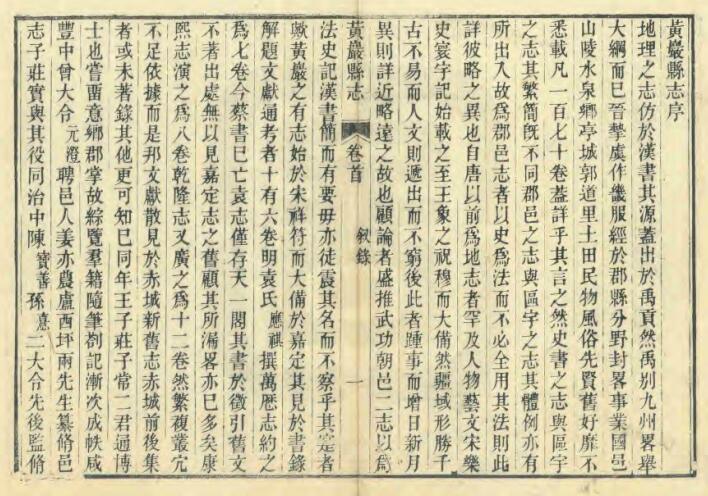 黃巖縣志序
地理之志仿於漢書其源蓋出於禹貢然禹別九州畧舉
大綱而已晉摯虞作畿服經於郡縣分野封畧事業國邑
山陵水泉鄉亭城郭道里土田民物風俗先賢舊好靡不
悉載凡一百七十卷蓋詳乎其言之然史書之志與區宇
之志其繁簡旣不同郡邑之志與區宇之志其體例亦有
所出入故爲郡邑志者以史爲法而不必全用其法則此
詳彼略之異也自唐以前爲地志者罕及人物藝文宋樂
史寰宇記始載之至王象之祝穆而大備然疆域形勝千
古不易而人文則遞出而不窮後此者踵事而增日新月
異則詳近略遠之故也顧論者盛推武功朝邑二志以爲
黃巖縣志
卷首
敘錄
一
法史記漢書簡而有要毋亦徒震其名而不察乎其寔者
歟黃巖之有志始於宋祥符而大備於嘉定其見於書錄
解題文獻通考者十有六卷明袁氏應祺撰萬厯志約之
爲七卷今蔡書已亡袁志僅存天一閣其書於徵引舊文
不著出處無以見嘉定志之舊顧其所漏畧亦已多矣康
熙志演之爲八卷乾隆志又廣之爲十二卷然繁複叢冗
不足依據而是邦文獻散見於赤城新舊志赤城前後集
者或未著錄其他更可知已同年王子莊子常二君通博
士也嘗畱意鄉郡掌故綜覽羣籍隨筆劄記漸次成帙咸
豐中曾大令元澄聘邑人姜亦農盧西坪兩先生纂脩邑
志子莊實與其役同治中陳寶善孫憙二大令先後監脩